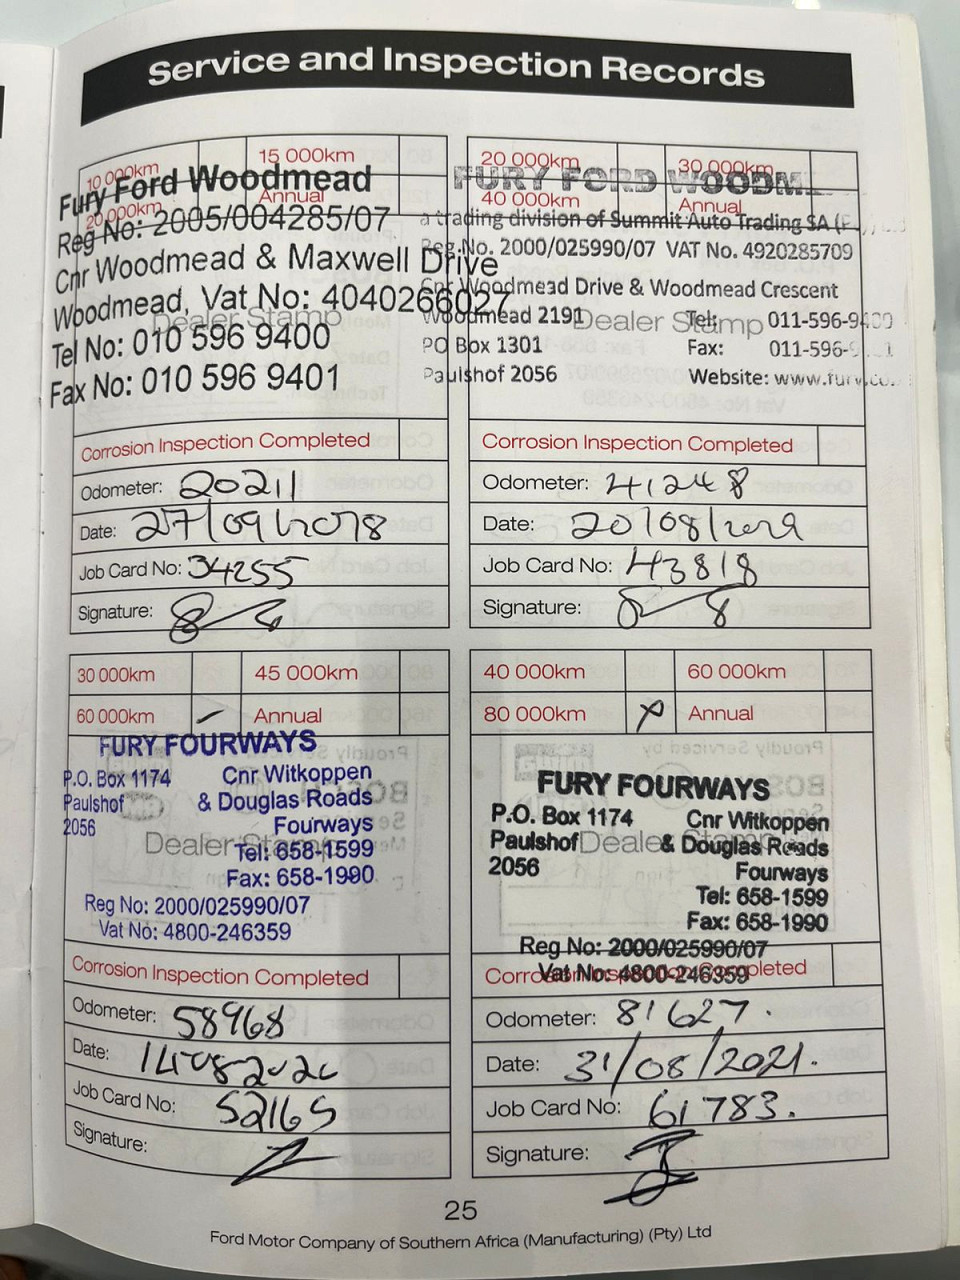 Service and Inspection Records
10 000km
15 000km
20 000km
Annual
Fury Ford Woodmead
Reg No: 2005/004285/07
Cnr Woodmead & Maxwell Drive
Woodmead, Vat No: 4040266027
Dealer Stamp
Tel No: 010 596 9400
Fax No: 010 596 9401
Corrosion Inspection Completed
Odometer: 20211
Date: 27/09/2018
Job Card No: 34255
Signature:
20 000km
30 000km
40 000km
Annual
FURY FORD
a trading division of Summit Auto Trading SA
Reg.No. 2000/025990/07 VAT No. 4920285709
Cnr Woodmead Drive & Woodmead Crescent
Woodmead 2191
Dealer Stamp
Tel: 011-596-9400
PO Box 1301
Fax: 011-596-
Paulshof 2056
Website:
Corrosion Inspection Completed
Odometer: 41248
Date: 20/08/2019
Job Card No: 43818
Signature:
30 000km
45 000km
60 000km
Annual
FURY FOURWAYS
P.O. Box 1174
Cnr Witkoppen
Paulshof
& Douglas Roads
2056
Fourways
Dealer Stamp
Tel: 658-1599
Fax: 658-1990
Reg No: 2000/025990/07
Vat No: 4800-246359
Corrosion Inspection Completed
Odometer: 58968
Date: 14-08-2020
Job Card No: 52165
Signature:
40 000km
60 000km
80 000km
Annual
FURY FOURWAYS
P.O. Box 1174
Cnr Witkoppen
Paulshof
Dealer Stamp
& Douglas Roads
2056
Fourways
Tel: 658-1599
Fax: 658-1990
Reg No: 2000/025990/07
Vat No: 4800-246359
Corrosion Inspection Completed
Odometer: 81627.
Date: 31/08/2021.
Job Card No: 61783.
Signature:
25
Ford Motor Company of Southern Africa (Manufacturing) (Pty) Ltd